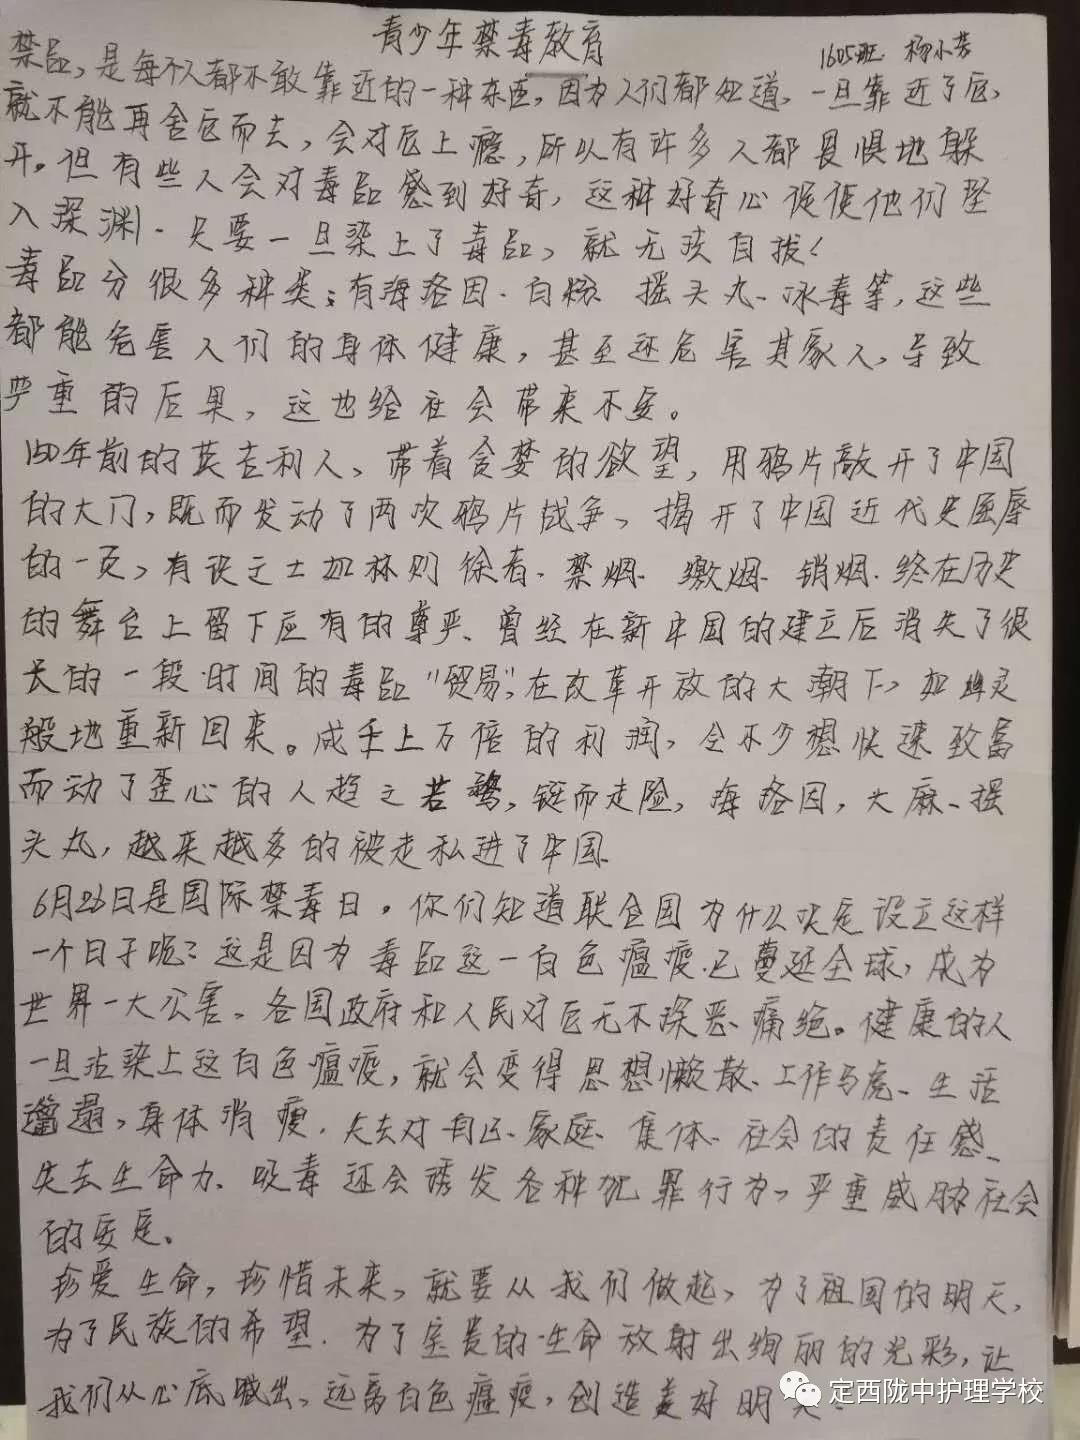 青少年禁毒教育
1605班 杨小芳
禁品,是每个人都不敢靠近的一种东西,因为人们都知道,一旦靠近了它,
就不能再舍它而去,会对它上瘾,所以有许多人都畏惧地躲
开。但有些人会对毒品感到好奇,这种好奇心促使他们坠
入深渊.只要一旦染上了毒品,就无法自拔!
毒品分很多种类:有海洛因.白粉.摇头丸、冰毒等,这些
都能危害人们的身体健康,甚至还危害其家人,导致
严重的后果,这也给社会带来不安。
150年前的英吉利人,带着贪婪的欲望,用鸦片敲开了中国
的大门,既而发动了两次鸦片战争,揭开了中国近代史屈辱
的一页,有识之士如林则徐者.禁烟.缴烟.销烟.终在历史
的舞台上留下应有的尊严、曾经在新中国的建立后消失了很
长的一段时间的毒品“贸易”,在改革开放的大潮下,如幽灵
般地重新回来。成千上万倍的利润,令不少想快速致富
而动了歪心的人趋之若鹜,铤而走险,海洛因,大麻、摇
头丸,越来越多的被走私进了中国.
6月26日是国际禁毒日。你们知道联合国为什么决定设立这样
一个日子呢?这是因为毒品这一白色瘟疫.已蔓延全球,成为
世界一大公害。各国政府和人民对它无不深恶痛绝。健康的人
一旦沾染上这白色瘟疫,就会变得思想懒散、工作马虎、生活
邋遢,身体消瘦.失去对自己、家庭、集体、社会的责任感、
失去生命力.吸毒还会诱发各种犯罪行为,严重威胁社会
的安定。
珍爱生命,珍惜未来,就要从我们做起,为了祖国的明天,
为了民族的希望.为了宝贵的生命放射出绚丽的光彩,让
我们从心底喊出,远离白色瘟疫,创造美好明天.
定西陇中护理学校